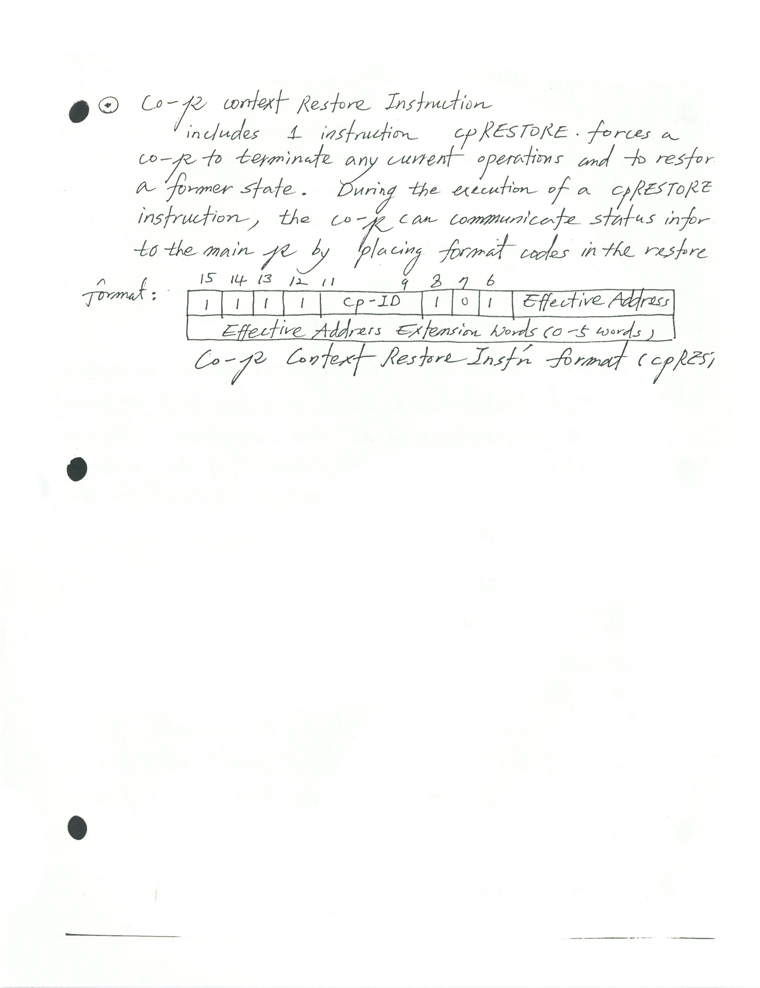 Co-pr context Restore Instruction
includes 1 instruction cpRESTORE. forces a
co-pr to terminate any current operations and to restor
a former state. During the execution of a cpRESTORE
instruction, the co-pr can communicate status infor
to the main pr by placing format codes in the restore
format:
15 14 13 12 11 9 8 7 6
1 1 1 1 Cp-ID 1 0 1 Effective Address
Effective Address Extension Words (0-5 words)
Co-pr Context Restore Inst'n format (cpRES